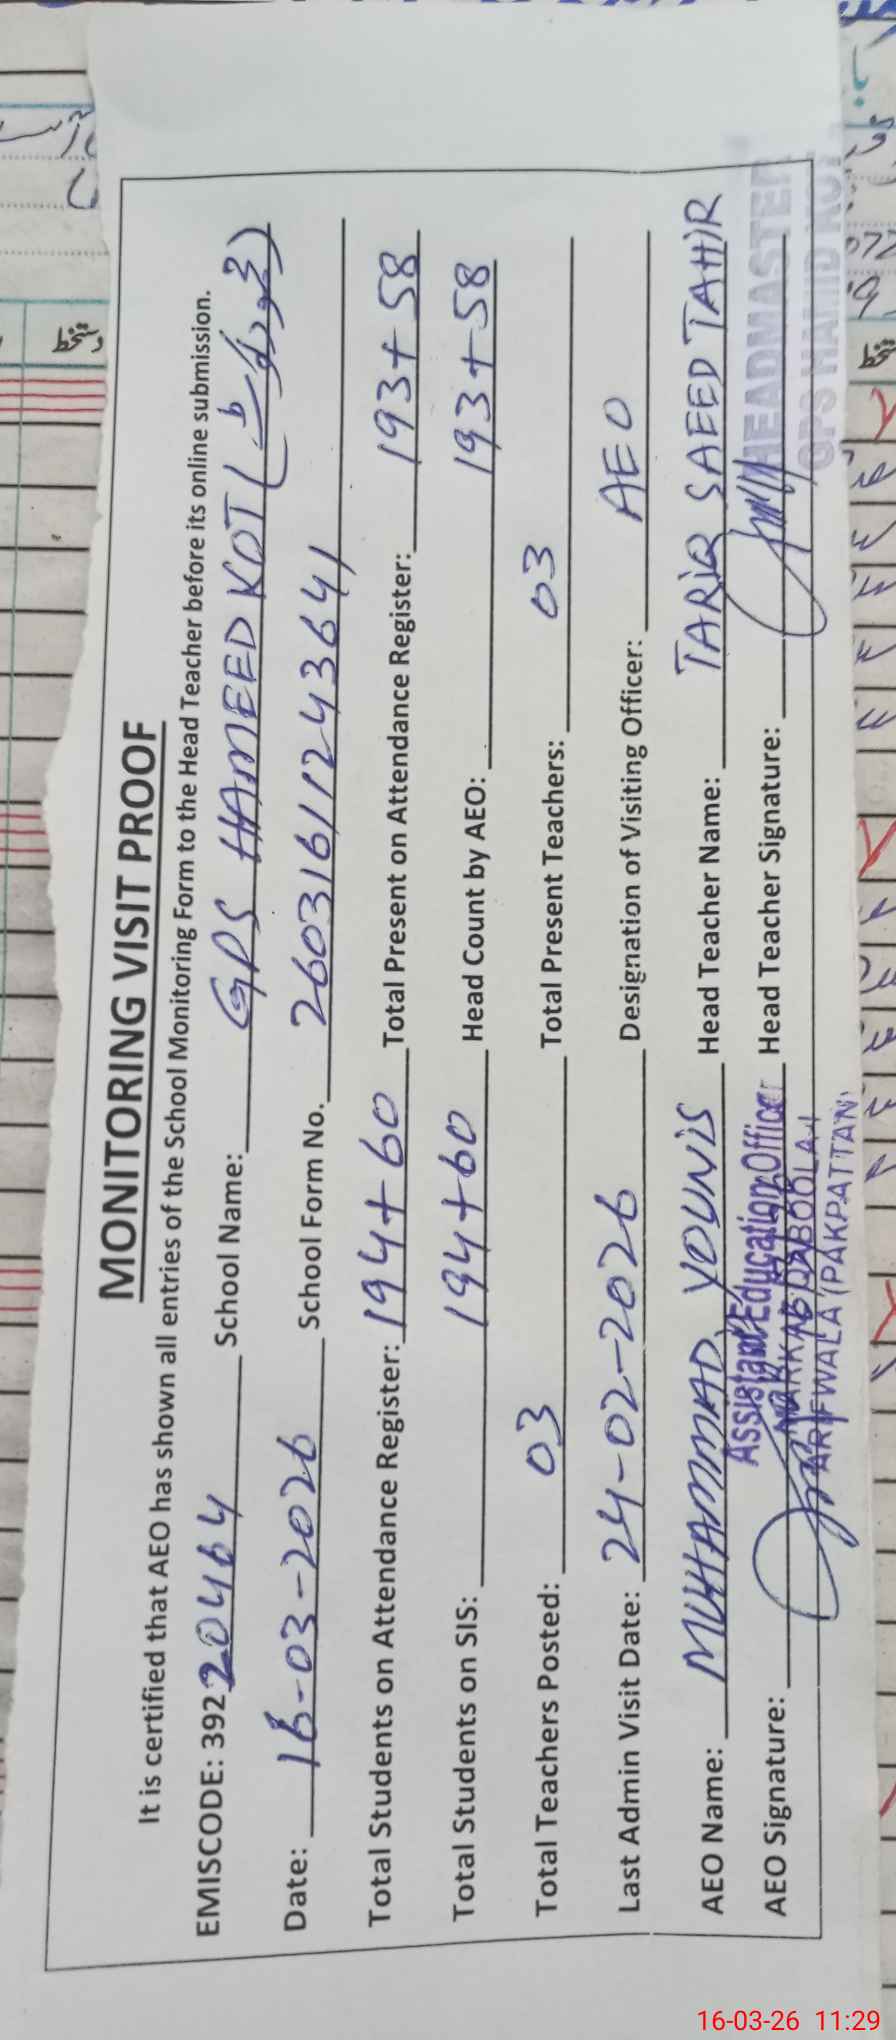 MONITORING VISIT PROOF
It is certified that AEO has shown all entries of the School Monitoring Form to the Head Teacher before its online submission.
EMISCODE: 39220464 School Name: GPS HAMEED KOT
Date: 16-03-2026 School Form No. 26031611243641
Total Students on Attendance Register: 194+60 Total Present on Attendance Register: 193+58
Total Students on SIS: 194+60 Head Count by AEO: 193+58
Total Teachers Posted: 03 Total Present Teachers: 03
Last Admin Visit Date: 24-02-2026 Designation of Visiting Officer: AEO
AEO Name: MUHAMMAD YOUNIS Head Teacher Name: TARIQ SAEED TAHIR
AEO Signature: Head Teacher Signature:
Assistant Education Officer
ARIFWALA (PAKPATTAN)
HEADMASTER
GPS HAMID KOT
دستخط
16-03-26 11:29